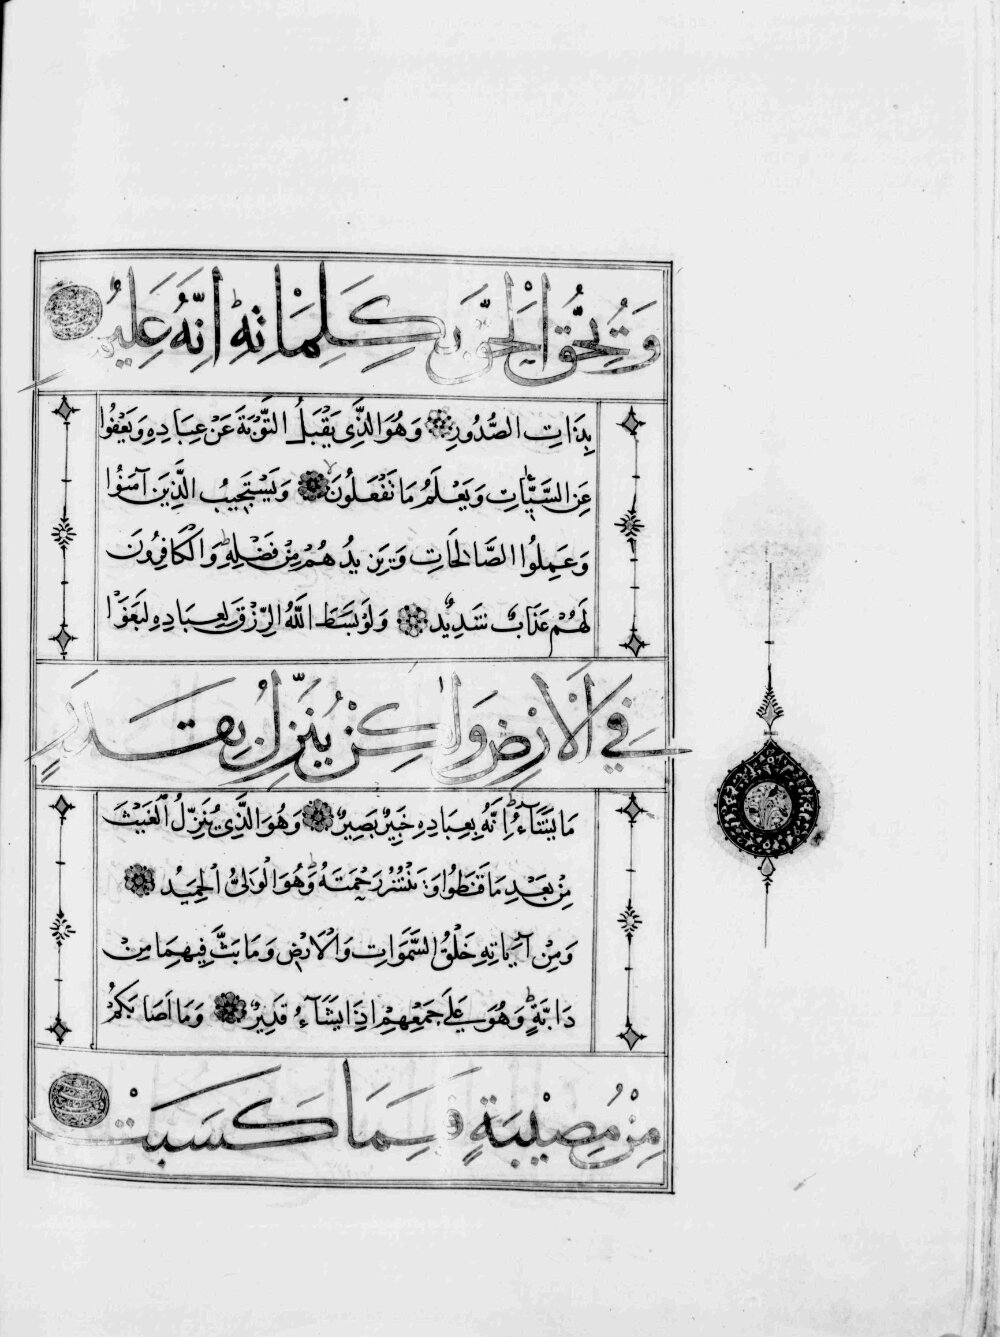 وَيُحِقُّ الْحَقَّ بِكَلِمَاتِهِ اِنَّهُ عَلِيمٌ
بِذَاتِ الصُّدُورِ وَهُوَ الَّذِي يَقْبَلُ التَّوْبَةَ عَنْ عِبَادِهِ وَيَعْفُوا
عَنِ السَّيِّاٰتِ وَيَعْلَمُ مَا تَفْعَلُونَ وَيَسْتَجِيبُ الَّذِينَ آمَنُوا
وَعَمِلُوا الصَّالِحَاتِ وَيَزِيدُهُمْ مِنْ فَضْلِهِ وَالْكَافِرُونَ
لَهُمْ عَذَابٌ شَدِيدٌ وَلَوْ بَسَطَ اللّٰهُ الرِّزْقَ لِعِبَادِهِ لَبَغَوْا
فِي الْاَرْضِ وَلٰكِنْ يُنَزِّلُ بِقَدَرٍ
مَا يَشَآءُ اِنَّهُ بِعِبَادِهِ خَبِيرٌ بَصِيرٌ وَهُوَ الَّذِي يُنَزِّلُ الْغَيْثَ
مِنْ بَعْدِ مَا قَنَطُوا وَيَنْشُرُ رَحْمَتَهُ وَهُوَ الْوَلِيُّ الْحَمِيدُ
وَمِنْ آيَاتِهِ خَلْقُ السَّمٰوَاتِ وَالْاَرْضِ وَمَا بَثَّ فِيهِمَا مِنْ
دَابَّةٍ وَهُوَ عَلَى جَمْعِهِمْ اِذَا يَشَآءُ قَدِيرٌ وَمَا اَصَابَكُمْ
مِنْ مُصِيبَةٍ فَبِمَا كَسَبَتْ